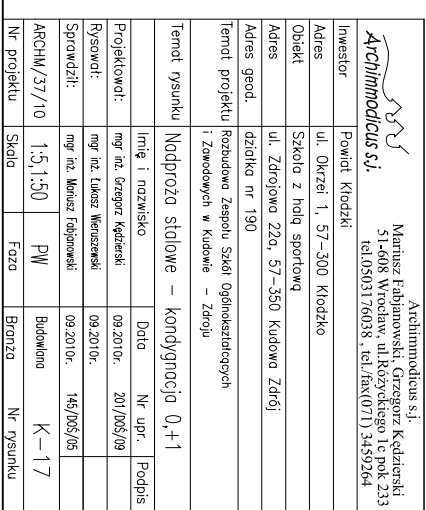 Archimmodicus s.j.
Archimmodicus s.j.
Mariusz Fabjanowski, Grzegorz Kędzierski
51-608 Wrocław, ul.Różyckiego 1c pok 233
tel.0503176038 , tel./fax(071) 3459264
Inwestor Powiat Kłodzki
Adres ul. Okrzei 1, 57-300 Kłodzko
Obiekt Szkoła z halą sportową
Adres ul. Zdrojowa 22a, 57-350 Kudowa Zdrój
Adres geod. działka nr 190
Temat projektu Rozbudowa Zespołu Szkół Ogólnokształcących
i Zawodowych w Kudowie - Zdroju
Temat rysunku Nadproża stalowe - kondygnacja 0,+1
Imię i nazwisko Data Nr upr. Podpis
Projektował: mgr inż. Grzegorz Kędzierski 09.2010r. 201/DOŚ/09
Rysował: mgr inż. Łukasz Wieruszewski 09.2010r.
Sprawdził: mgr inż. Mariusz Fabjanowski 09.2010r. 145/DOŚ/05
ARCHM/37/10 1:5,1:50 PW Budowlana K-17
Nr projektu Skala Faza Branża Nr rysunku